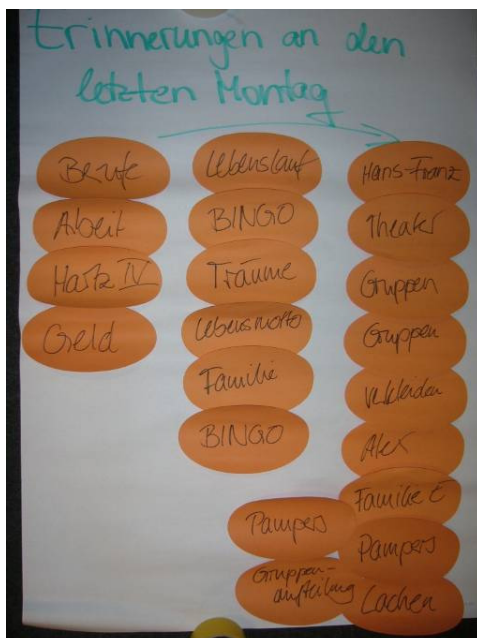 Erinnerungen an den
letzten Montag
Berufe
Arbeit
Hartz IV
Geld
Lebenslauf
BINGO
Träume
Lebensmotto
Familie
BINGO
Pampers
Gruppen-
aufteilung
Hans-Franz
Theater
Gruppen
Gruppen
Verkleiden
Alex
Familie E
Pampers
Lachen